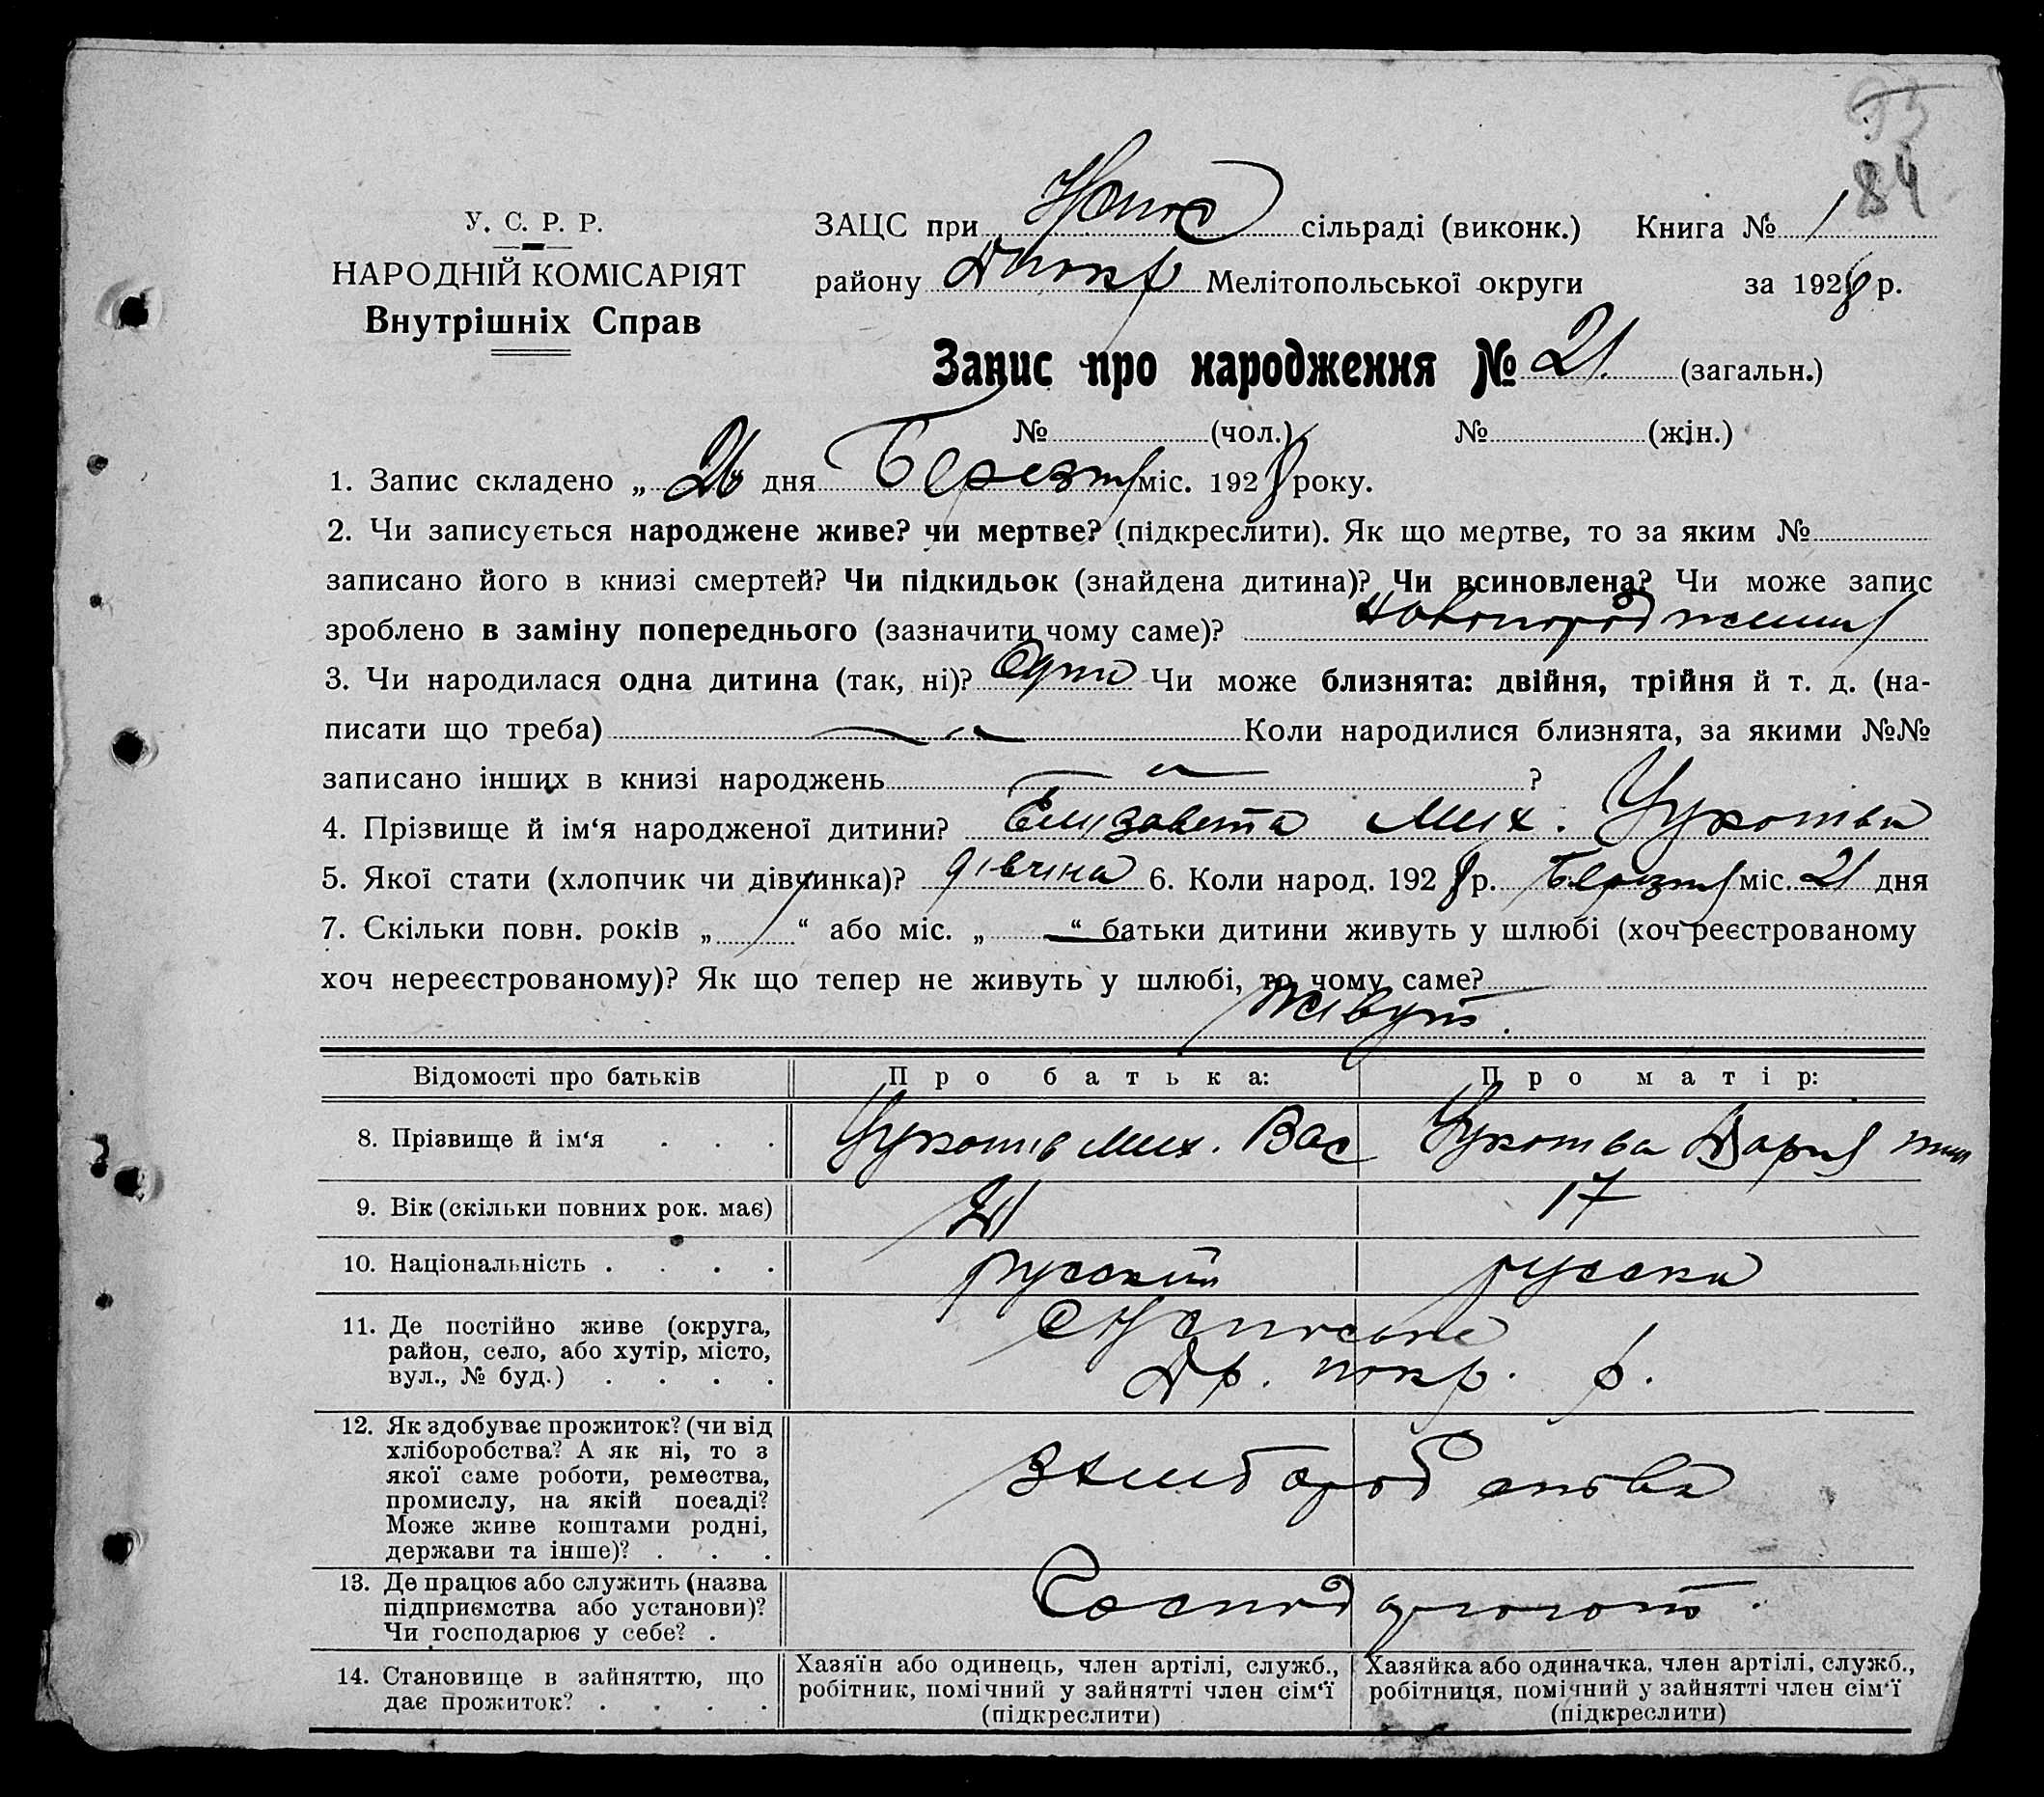 84
У. С. Р. Р.
НАРОДНІЙ КОМІСАРІЯТ
Внутрішніх Справ
ЗАЦС при сільраді (виконк.) Книга № 1
району Мелітопольської округи за 1928 р.
Запис про народження № 21 (загальн.)
№ (чол.) № (жін.)
1. Запис складено „ 26 дня Березня міс. 1928 року.
2. Чи записується народжене живе? чи мертве? (підкреслити). Як що мертве, то за яким №
записано його в книзі смертей? Чи підкидьок (знайдена дитина)? Чи всиновлена? Чи може запис
зроблено в заміну попереднього (зазначити чому саме)?
3. Чи народилася одна дитина (так, ні)? Одна Чи може близнята: двійня, трійня й т. д. (на-
писати що треба) Коли народилися близнята, за якими №№
записано інших в книзі народжень ?
4. Прізвище й ім‘я народженої дитини? Елизавета Мих.
5. Якої стати (хлопчик чи дівчинка)? дівчіна 6. Коли народ. 1928 р. Березня міс. 21 дня
7. Скільки повн. років „ 1 “ або міс. „ — “ батьки дитини живуть у шлюбі (хоч реєстрованому
хоч нереєстрованому)? Як що тепер не живуть у шлюбі, то чому саме?
живуть.
Відомості про батьків Про батька: Про матір:
8. Прізвище й ім‘я . . . Мих. Вас Дарія
9. Вік (скільки повних рок. має) 21 17
10. Національність . . . . русский русска
11. Де постійно живе (округа,
район, село, або хутір, місто,
вул., № буд.) . . . .
12. Як здобуває прожиток? (чи від
хліборобства? А як ні, то з
якої саме роботи, ремества,
промислу, на якій посаді?
Може живе коштами родні,
держави та інше)? . . .
13. Де працює або служить (назва
підприємства або установи)?
Чи господарює у себе? .
14. Становище в зайняттю, що
дає прожиток? . . . .
Хазяїн або одинець, член артілі, служб.,
робітник, помічний у зайнятті член сім‘ї
(підкреслити)
Хазяйка або одиначка, член артілі, служб.,
робітниця, помічний у зайнятті член сім‘ї
(підкреслити)